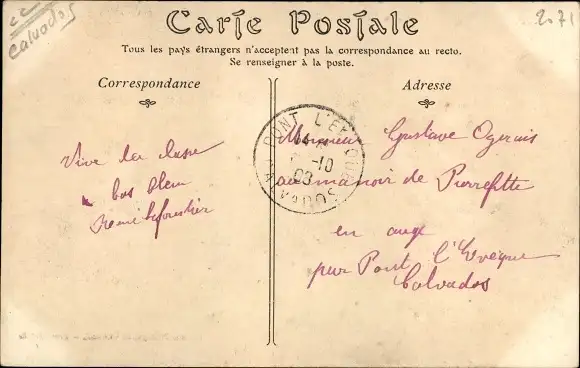 cc
Calvados
2071
Carte Postale
Tous les pays étrangers n'acceptent pas la correspondance au recto.
Se renseigner à la poste.
Correspondance
Adresse
Vive la classe
bas
PONT L'EVEQUE
CALVADOS
-10
08
Monsieur Gustave Ogerais
au manoir de Pierrefitte
en auge
par Pont l'Eveque
Calvados